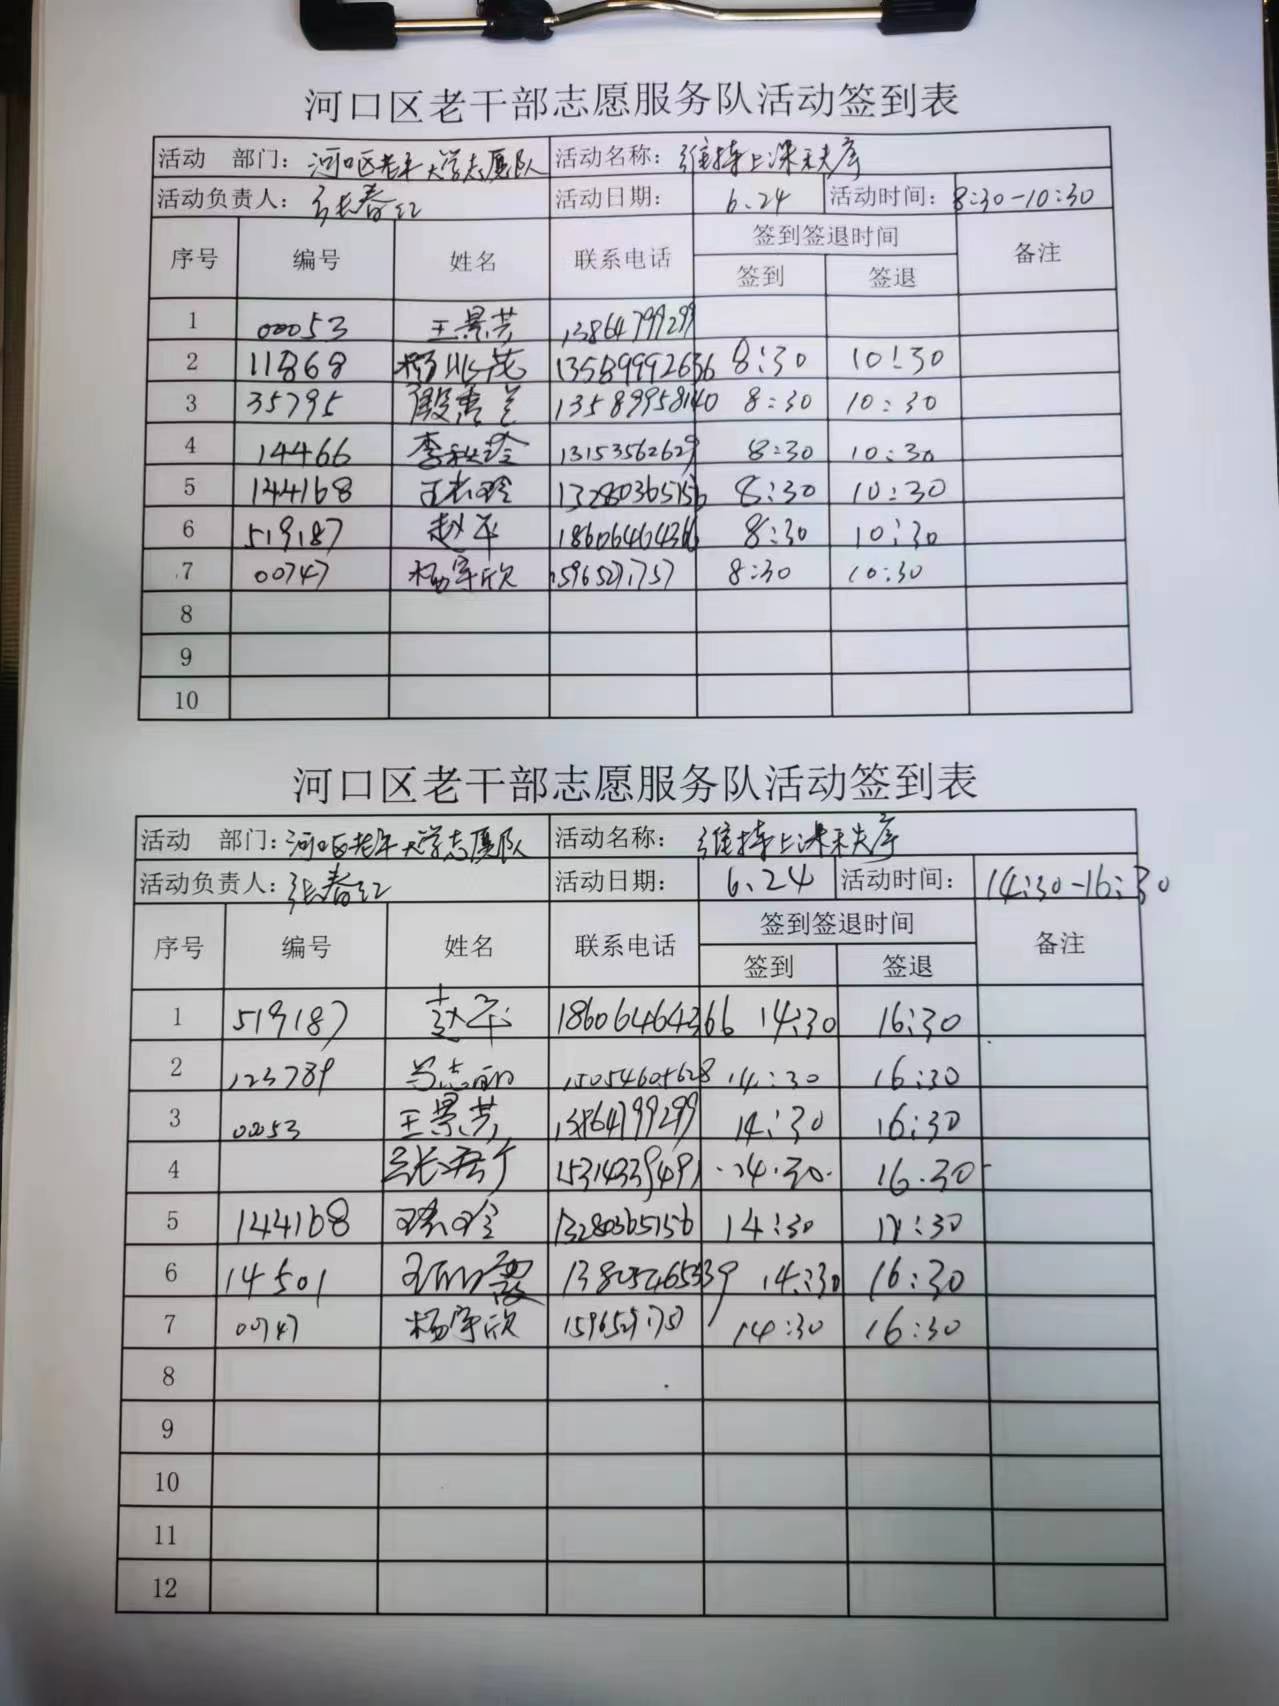 河口区老干部志愿服务队活动签到表
活动 部门: 河口区老年大学志愿队 活动名称: 维持上课秩序
活动负责人: 张春红 活动日期: 6.24 活动时间: 8:30-10:30
序号 编号 姓名 联系电话 签到签退时间 备注
签到 签退
1 00053 王景芳 13864799299
2 11868 杨 13589992636 8:30 10:30
3 35795 殷 13589958140 8:30 10:30
4 14466 李秋玲 13153562629 8:30 10:30
5 144168 王 玲 13280365156 8:30 10:30
6 519187 赵军 18606464366 8:30 10:30
7 00747 杨宇欣 8:30 10:30
8
9
10
河口区老干部志愿服务队活动签到表
活动 部门: 河口区老年大学志愿队 活动名称: 维持上课秩序
活动负责人: 张春红 活动日期: 6.24 活动时间: 14:30-16:30
序号 编号 姓名 联系电话 签到签退时间 备注
签到 签退
1 519187 赵军 18606464366 14:30 16:30
2 123789 志丽 15054605628 14:30 16:30
3 0053 王景芳 13864799299 14:30 16:30
4 张 15314339491 14.30 16.30
5 144168 玲 13280365156 14:30 :30
6 14501 王丽霞 13805465339 14:30 16:30
7 00747 杨宇欣 14:30 16:30
8
9
10
11
12